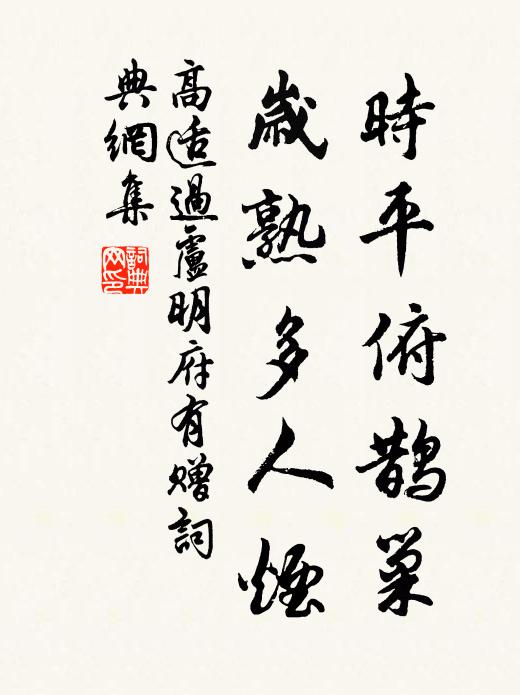 時平俯鵲巢
歲熟多人煙
高适過盧明府有贈詞
典網集
詞典网印